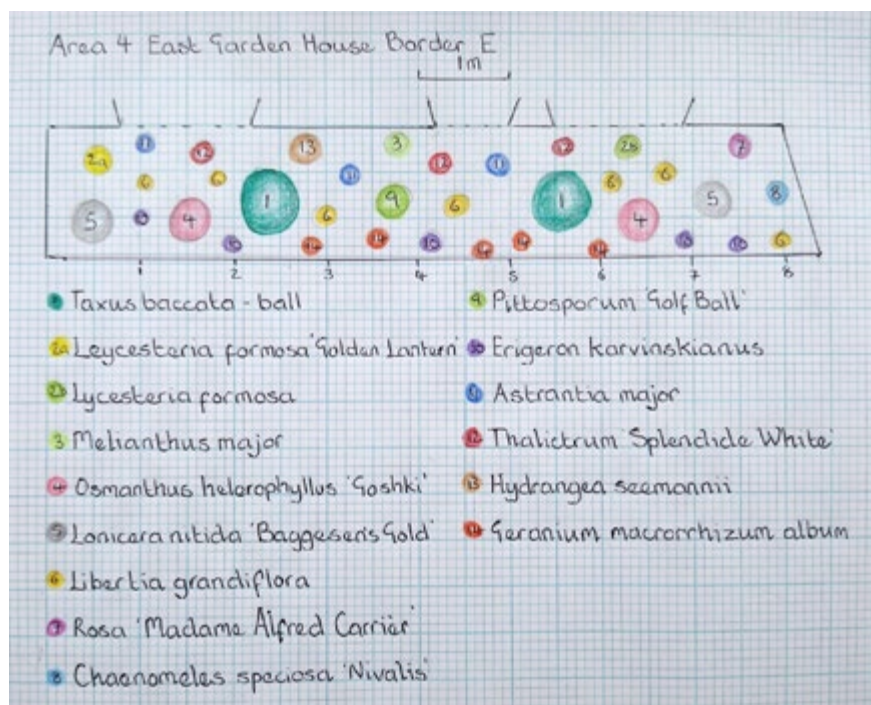 Area 4 East Garden House Border E
1m
11 13 3 12 2b 7
2a 12 12 11
6 6 11 6 6
1 9 6 1 5 8
5 10 4 6 4
10 14 14 10 14 14 14 10 10 6
1 2 3 4 5 6 7 8
1 Taxus baccata - ball
2a Leycesteria formosa 'Golden Lantern'
2b Lycesteria formosa
3 Melianthus major
4 Osmanthus helorophyllus 'Goshki'
5 Lonicera nitida 'Baggesen's Gold'
6 Libertia grandiflora
7 Rosa 'Madame Alfred Carrièr'
8 Chaenomeles speciosa 'Nivalis'
9 Pittosporum 'Golf Ball'
10 Erigeron karvinskianus
11 Astrantia major
12 Thalictrum 'Splendide White'
13 Hydrangea seemannii
14 Geranium macrorrhizum album